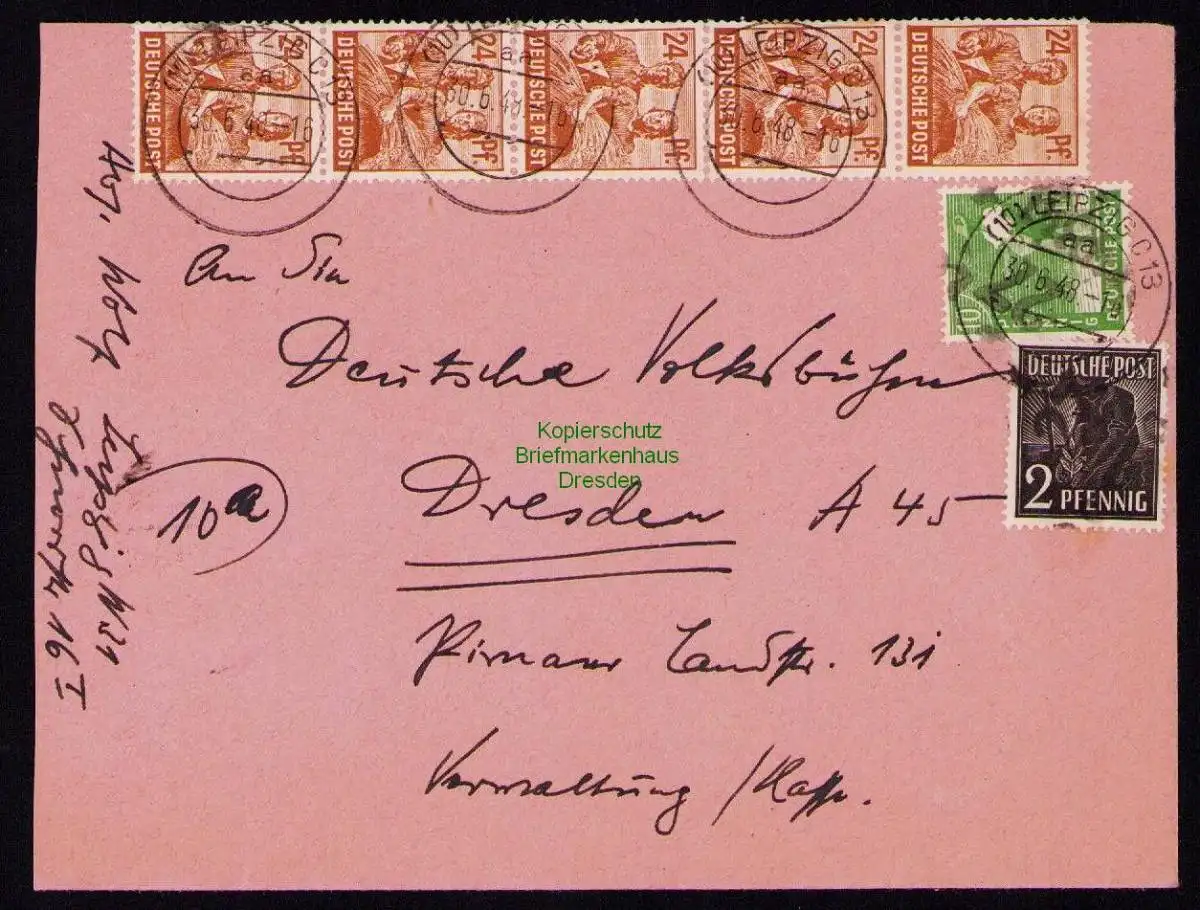 24 24 24
DEUTSCHE POST DEUTSCHE POST DEUTSCHE POST DEUTSCHE POST DEUTSCHE POST
Pf. Pf. Pf. Pf. Pf.
(10) LEIPZIG C 13
aa
30.6.48.-16
(10)
aa
30.6.48.-16
(10) LEIPZIG C 13
aa
30.6.48.-16
(10) LEIPZIG C 13
aa
30.6.48.-
DEUTSCHE POST
10
DEUTSCHE POST
2 PFENNIG
An die
Deutsche Volksbühne
Kopierschutz
Briefmarkenhaus
Dresden
Dresden A 45
10a
Pirnaer Landstr. 131
Verwaltung / Kasse.
Abs. Wolf
Leipzig N 21
16 I